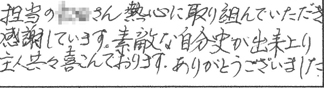 担当のさん熱心に取り組んでいただき
感謝しています。素敵な自分史が出来上り
主人共々喜こんでおります。ありがとうございました